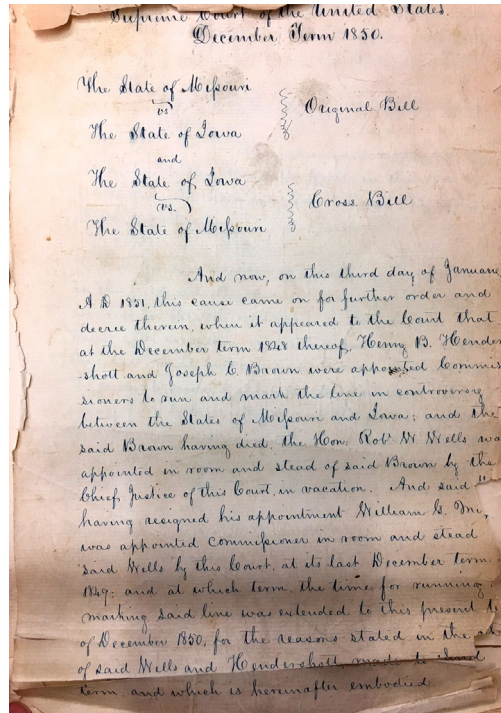 Supreme Court of the United States.
December Term 1850.
The State of Missouri
vs
The State of Iowa
Original Bill
and
The State of Iowa
vs.
The State of Missouri
Cross Bill
And now, on this third day of January
A D 1851, this cause came on for further order and
decree therein, when it appeared to the Court that
at the December term 1848 thereof, Henry B. Hender
-shott and Joseph C. Brown were appointed Commis
sioners to run and mark the line in controversy
between the States of Missouri and Iowa; and the
said Brown having died, the Hon. Robt W Wells was
appointed in room and stead of said Brown by the
Chief Justice of this Court, in vacation. And said
having resigned his appointment William G. Mi
was appointed commissioner in room and stead
said Wells by this Court, at its last December term
1849; and at which term, the time for running
marking said line was extended to this present t
of December 1850, for the reasons stated in the
of said Wells and Hendershott made to said
term, and which is hereinafter embodied